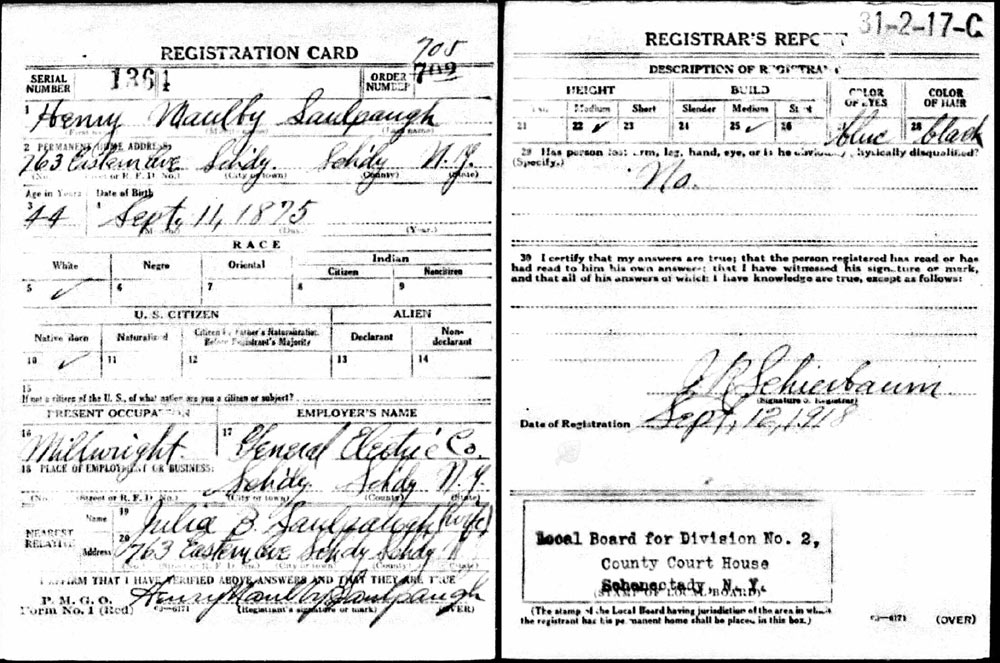 REGISTRATION CARD
SERIAL NUMBER 1364
ORDER NUMBER 709
705
1 Henry Maulby Saulpaugh
(First name) (Middle name) (Last name)
2 PERMANENT HOME ADDRESS:
763 Eastern ave Schdy Schdy N.Y.
(No.) (Street or R. F. D. No.) (City or town) (County) (State)
Age in Years Date of Birth
3 44 4 Sept. 11, 1875
(Month.) (Day.) (Year.)
RACE
White Negro Oriental Indian
Citizen Noncitizen
5 ✓ 6 7 8 9
U. S. CITIZEN ALIEN
Native Born Naturalized Citizen by Father's Naturalization Before Registrant's Majority Declarant Non-declarant
10 ✓ 11 12 13 14
15
If not a citizen of the U. S., of what nation are you a citizen or subject?
PRESENT OCCUPATION EMPLOYER'S NAME
16 Millwright. 17 General Electric Co.
18 PLACE OF EMPLOYMENT OR BUSINESS:
Schdy Schdy N.Y.
(No.) (Street or R. F. D. No.) (City or town) (County) (State)
NEAREST RELATIVE
Name 19 Julia B. Saulpaugh (wife)
Address 20 763 Eastern ave Schdy Schdy N
(No.) (Street or R. F. D. No.) (City or town) (County) (State)
I AFFIRM THAT I HAVE VERIFIED ABOVE ANSWERS AND THAT THEY ARE TRUE
P. M. G. O.
Form No. 1 (Red) 03—6171 Henry Maulby Saulpaugh
(Registrant's signature or mark) (OVER)
31-2-17-C
REGISTRAR'S REPORT
DESCRIPTION OF REGISTRANT
HEIGHT BUILD COLOR OF EYES COLOR OF HAIR
Tall Medium Short Slender Medium Stout
21 22 ✓ 23 24 25 ✓ 26 blue 28 black
29 Has person lost arm, leg, hand, eye, or is he obviously physically disqualified?
(Specify.)
No.
30 I certify that my answers are true; that the person registered has read or has
had read to him his own answers; that I have witnessed his signature or mark,
and that all of his answers of which I have knowledge are true, except as follows:
J. R. Schierbaum
(Signature of Registrar)
Date of Registration Sept, 12, 1918
Local Board for Division No. 2,
County Court House
Schenectady, N. Y.
(STAMP OF LOCAL BOARD)
(The stamp of the Local Board having jurisdiction of the area in which
the registrant has his permanent home shall be placed in this box.)
03—6171 (OVER)